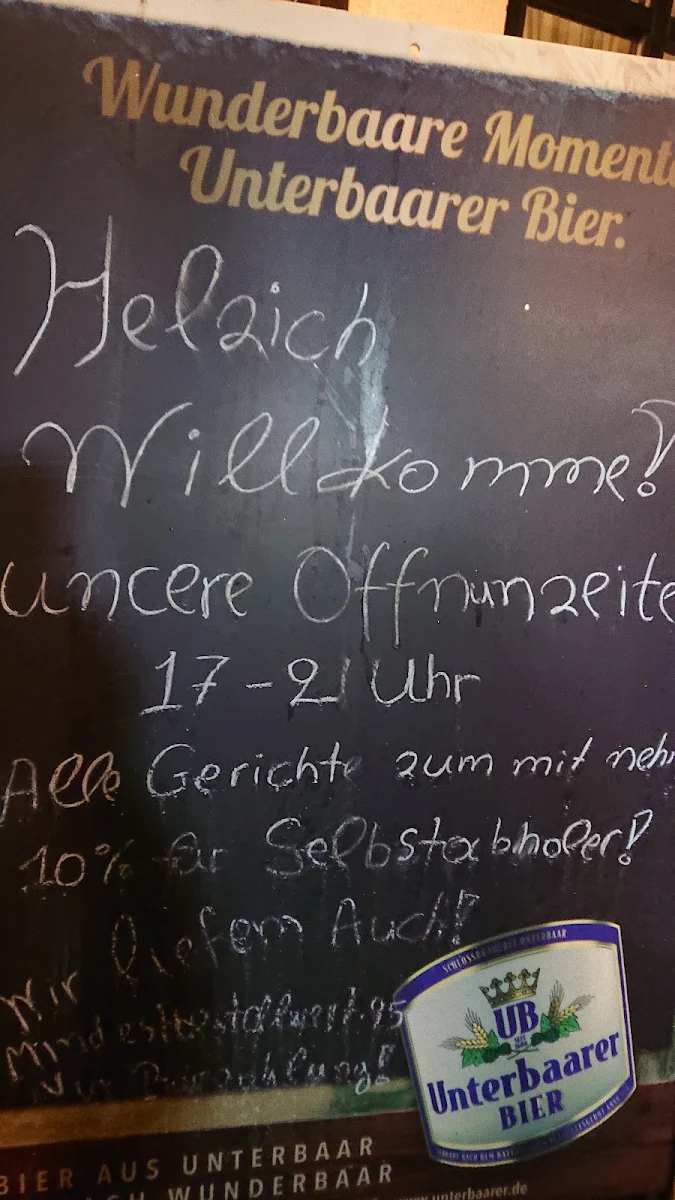 Wunderbaare Momente
Unterbaarer Bier.
Helzich
Willkomme!
uncere Offnunzeite
17-21 Uhr
Alle Gerichte zum mit nehm
10% für Selbstabholer!
Wir liefern Auch!
Mindestbestallwert. 95
Barzahlung!
SCHLOSSBRAUEREI UNTERBAAR
UB
SEIT
Unterbaarer
BIER
BIER AUS UNTERBAAR
ACH WUNDERBAAR
www.unterbaarer.de